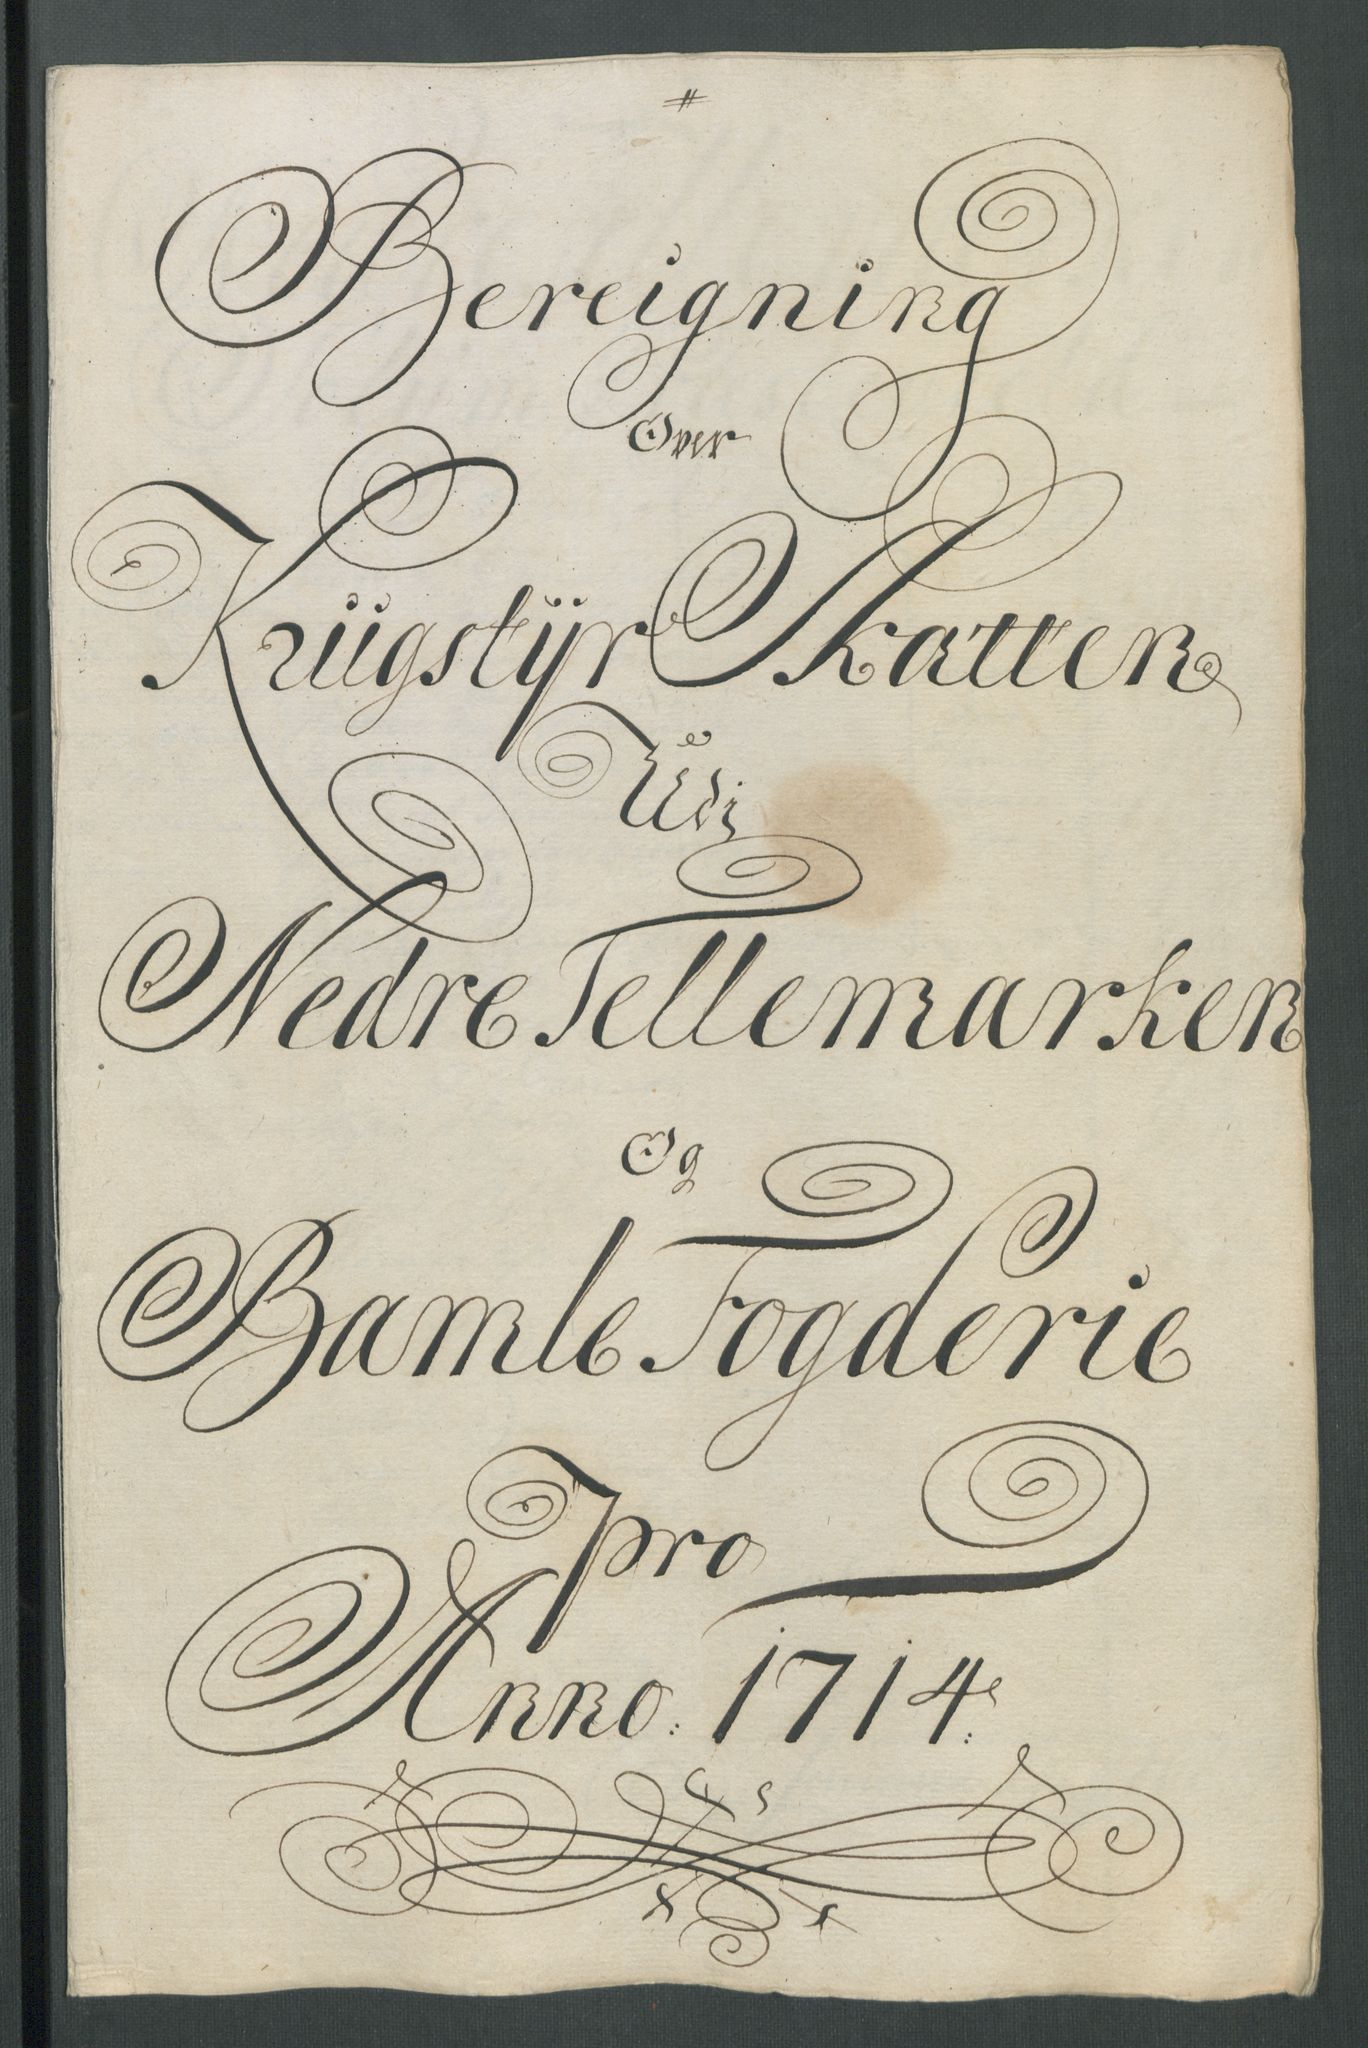 #
Bereigning
Over
Kriigstÿr Skatten
Udj
Nedre Tellemarken
Og
Bamle Fogderie
pro
Anno: 1714: